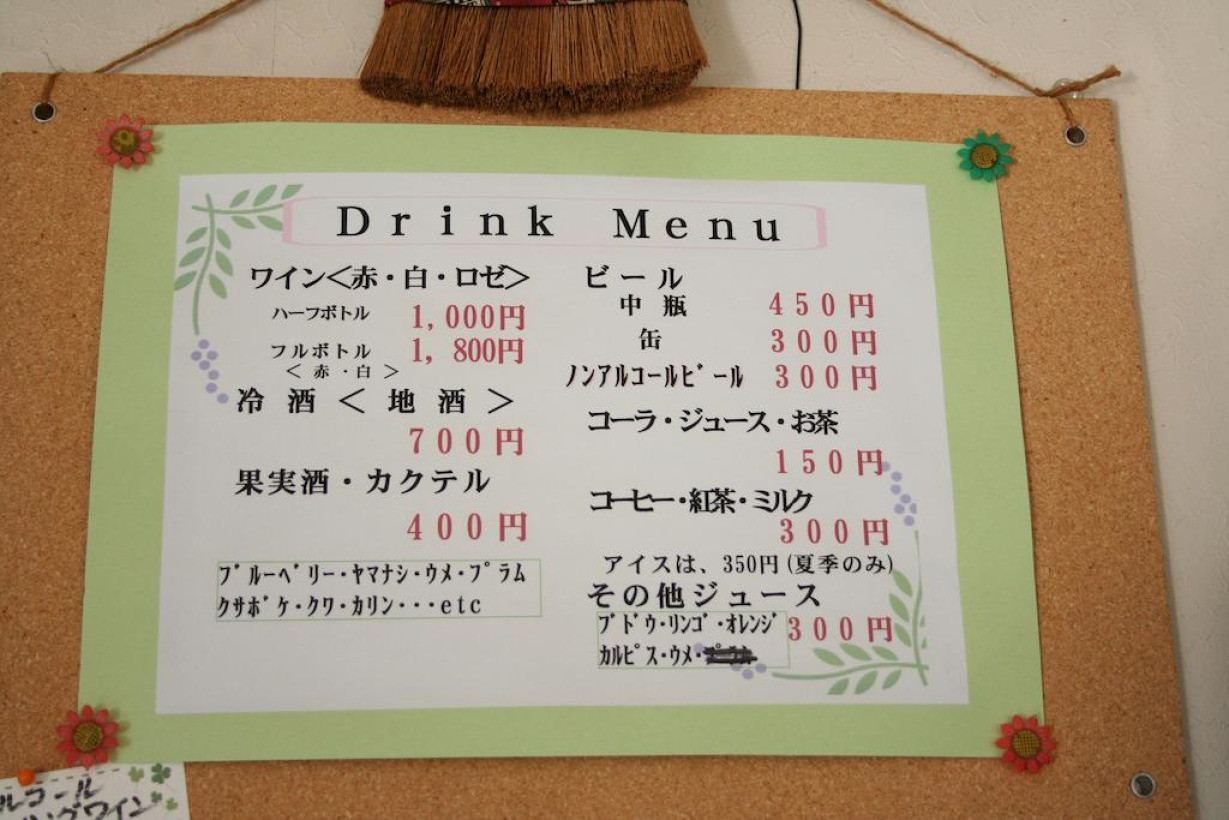 Drink Menu
ワイン<赤・白・ロゼ>
ハーフボトル 1,000円
フルボトル 1,800円
<赤・白>
冷酒<地酒>
700円
果実酒・カクテル
400円
ブルーベリー・ヤマナシ・ウメ・プラム
クサボケ・クワ・カリン・・・etc
ビール
中瓶 450円
缶 300円
ノンアルコールビール 300円
コーラ・ジュース・お茶
150円
コーヒー・紅茶・ミルク
300円
アイスは、350円(夏季のみ)
その他ジュース
ブドウ・リンゴ・オレンジ 300円
カルピス・ウメ・
ルコール
ングワイン